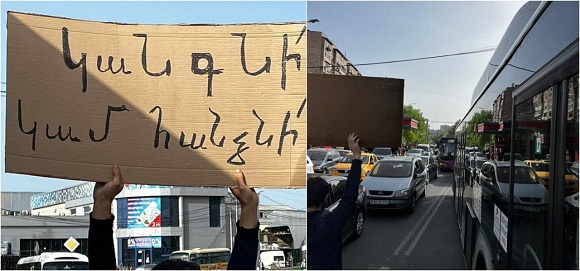 Կանգնի՛
կամ հանձնի՛